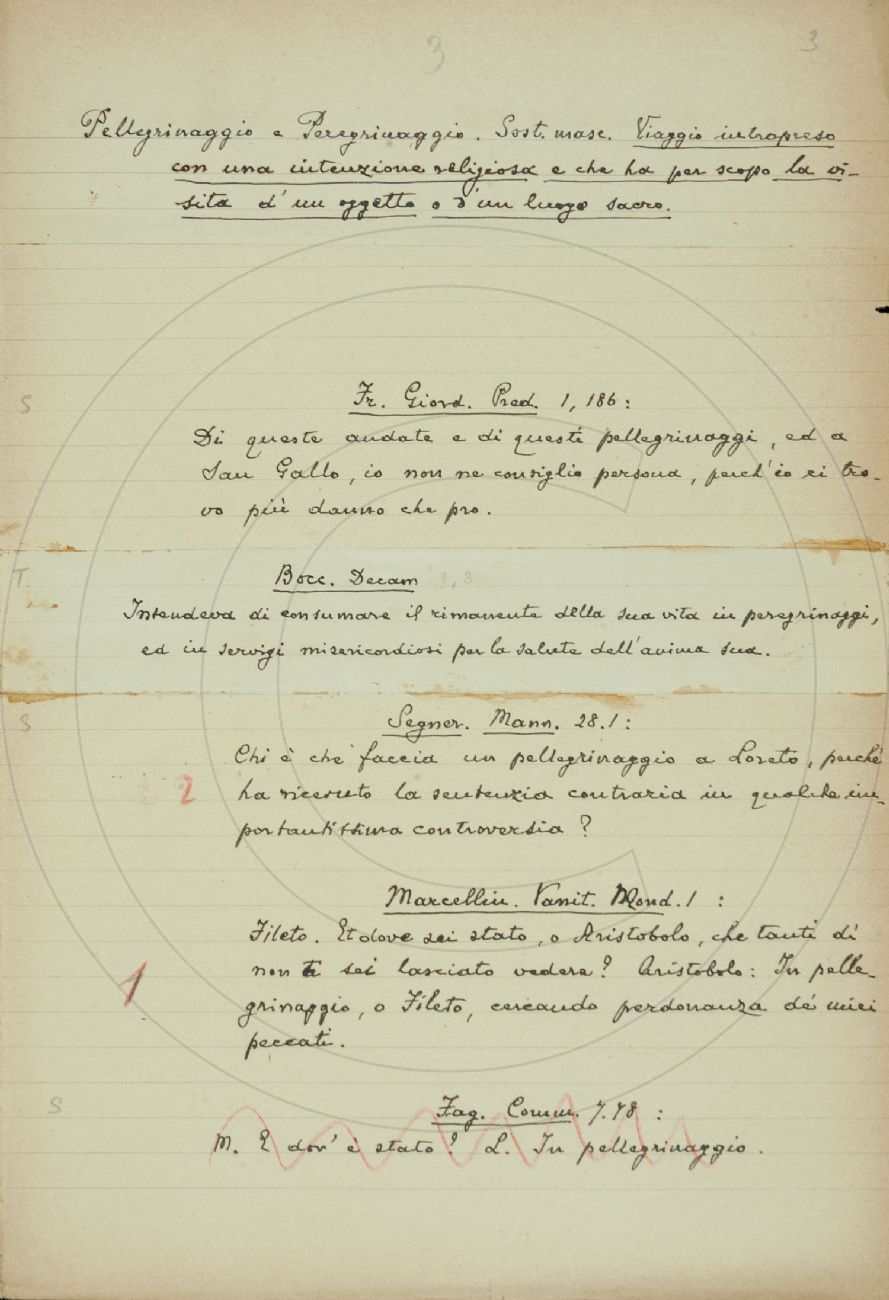 3 3
Pellegrinaggio e Peregrinaggio. Sost. masc. Viaggio intrapreso
con una intenzione religiosa e che ha per scopo la vi-
sita d'un oggetto o d'un luogo sacro.
S
Fr. Giord. Pred. 1, 186:
Di queste andate e di questi pellegrinaggi, ed a
San Gallo, io non ne consiglio persona, perch'io ci tro-
vo più danno che pro.
T.
Bocc. Decam 9,3
Intendeva di consumare il rimanente della sua vita in peregrinaggi,
ed in servigi misericordiosi per la salute dell'anima sua.
S
Segner. Mann. 28.1:
Chi è che faccia un pellegrinaggio a Loreto, perché
2 ha ricevuto la sentenzia contraria in qualche im-
portantissima controversia?
Marcellin. Vanit. Mond. 1:
Fileto. Et dove sei stato, o Aristobolo, che tanti dí
1 non te sei lasciato vedere? Aristobolo: In pelle-
grinaggio, o Fileto, cercando perdonanza de' miei
peccati.
S
Fag. Comm. 7.78:
M. E dov'è stato? L. In pellegrinaggio.